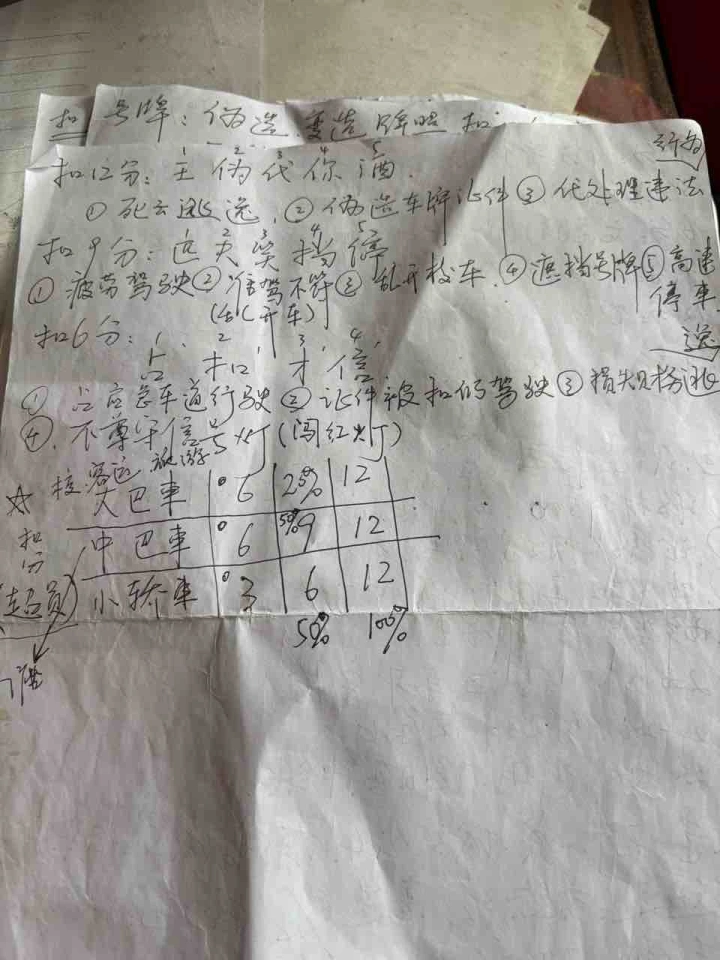 扣 号牌：伪造 变造牌照 扣
扣12分：王 伪 代 你 酒. 行为
1 2 3 4 5
① 死亡逃逸. ② 伪造车牌证件 ③ 代处理违法
扣9分：
1 2 3 4 5
① 疲劳驾驶 ② 准驾不符 ③ 乱开校车. ④ 遮挡号牌 ⑤ 高速
(乱开车) 停车
扣6分：占 扣 才 信 逃
1 2 3 4
① 占应急车道行驶 ② 证件被扣的驾驶 ③ 损失财物逃
④. 不尊守信号灯 (闯红灯)
☆ 校. 客运 旅游
大巴車 6 25% 12
扣分 中巴車 6 50% 9 12
(超员) 小轿車 3 6 12
50% 100%